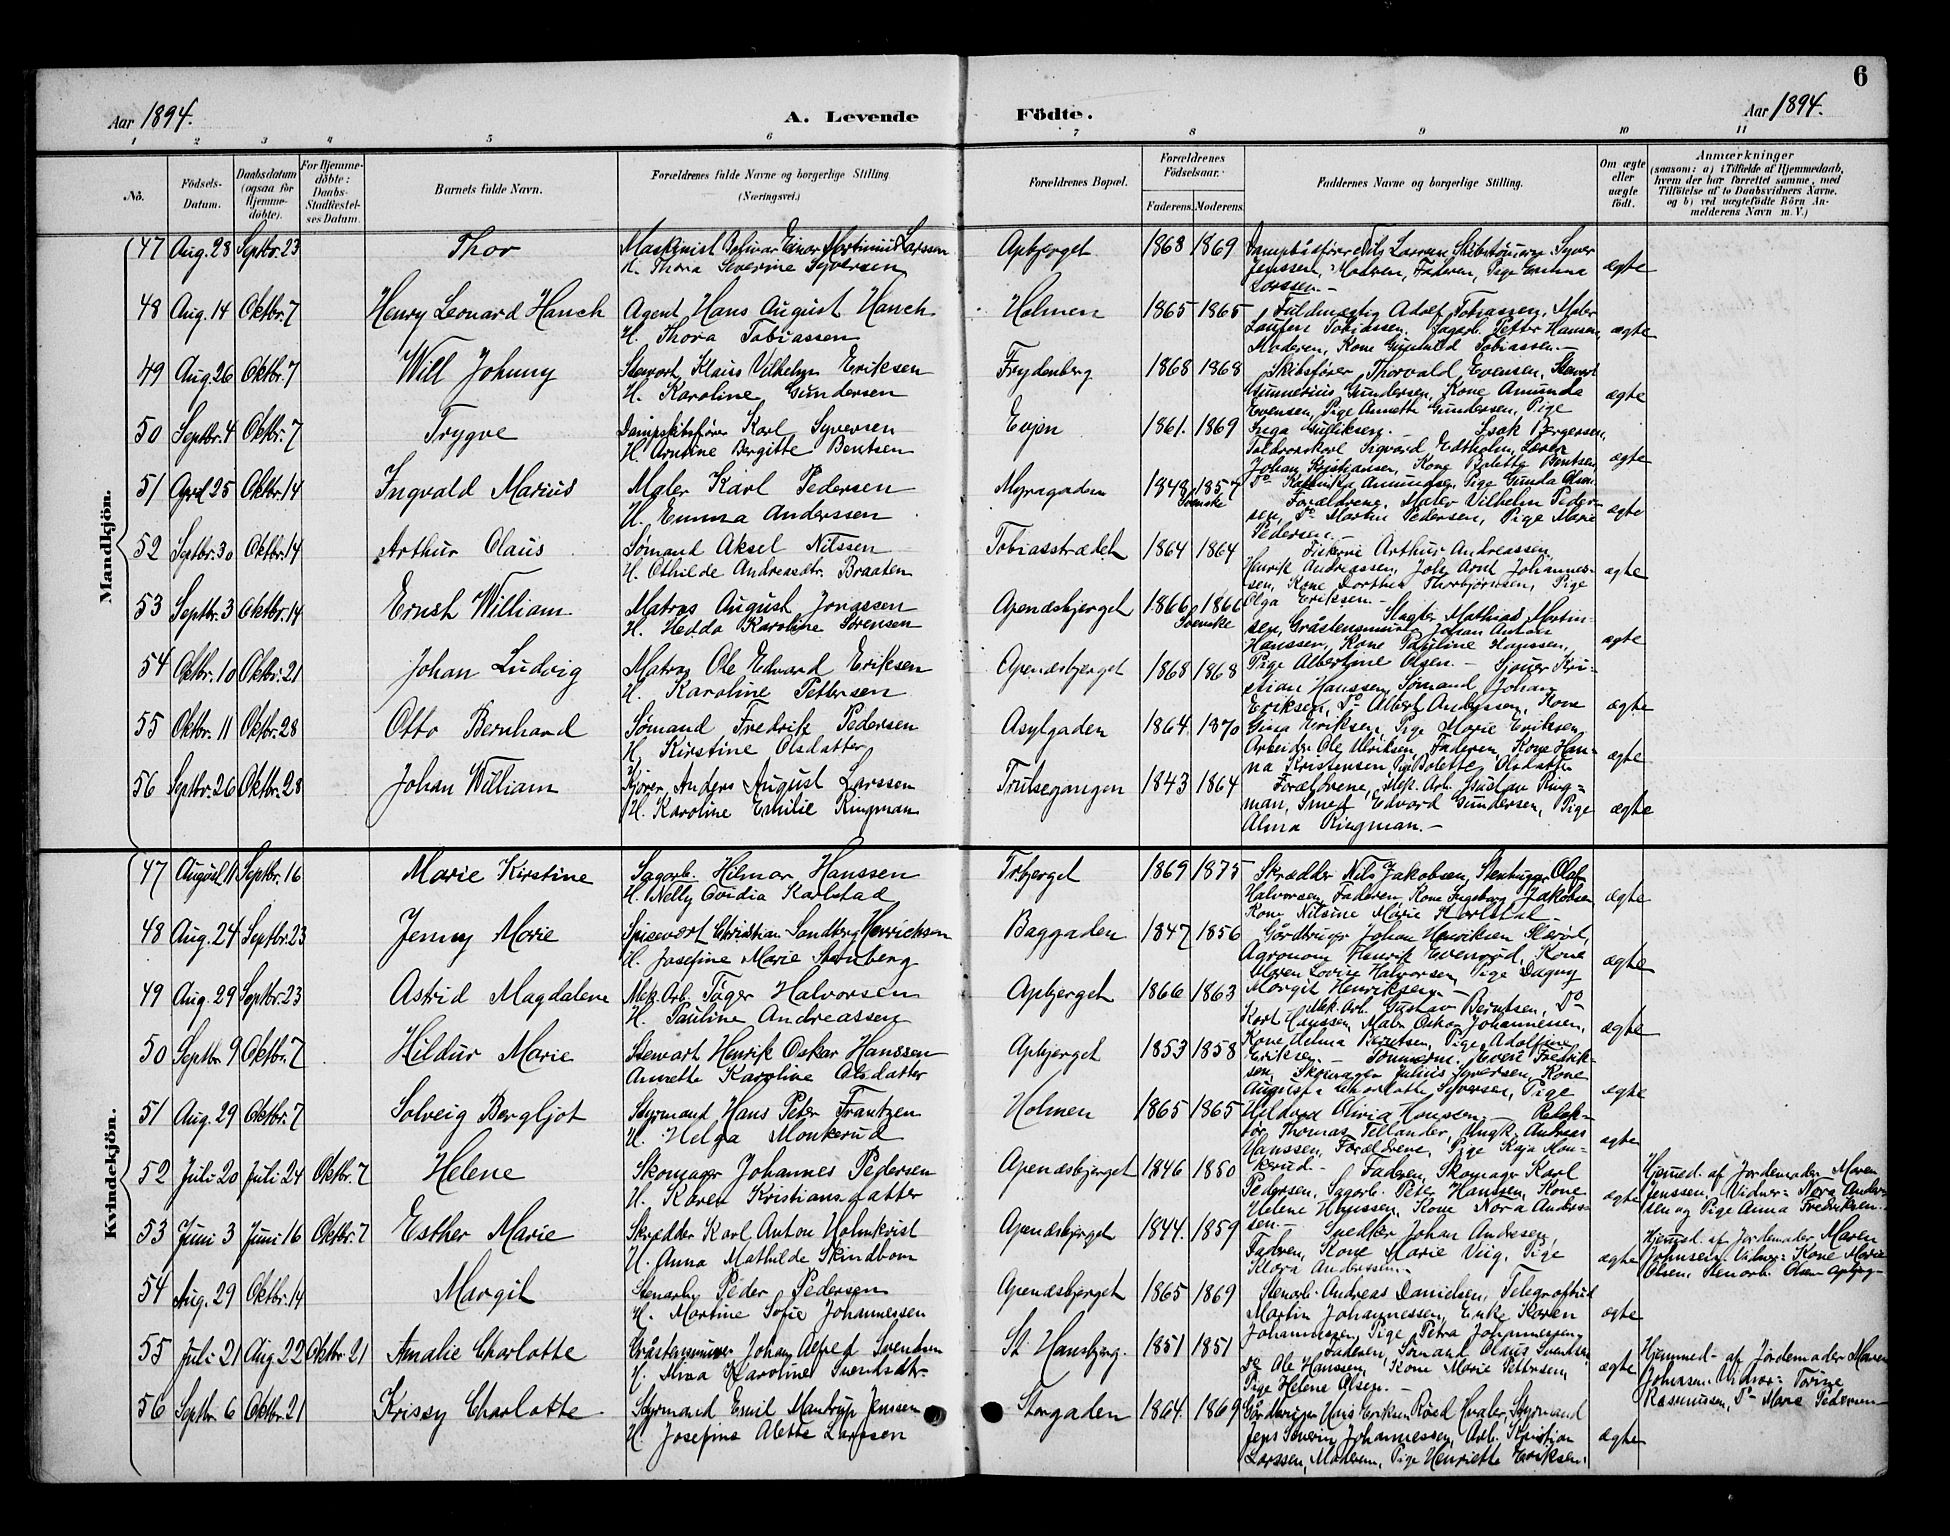 6
Aar 1894. A. Levende Födte. Aar 1894.
1 2 3 4 5 6 7 8 9 10 11
No. Födsels-Datum. Daabsdatum (ogsaa för Hjemmedöbte). For Hjemmedöbte: Daabs-Stadfæstelses Datum. Barnets fulde Navn. Forældrenes fulde Navne og borgerlige Stilling. (Næringsvei.) Forældrenes Bopæl. Forældrenes Födselsaar. Faderens. Moderens. Faddernes Navne og borgerlige Stilling. Om ægte eller uægte födt. Anmærkninger (saasom: a) i Tilfælde af Hjemmedaab, hvem der har forrettet samme, med Tilföielse af to Daabsvidners Navne, og b) ved uægtefödte Börn Anmelderens Navn m. V.)
Mandkjön.
47 Aug. 28 Septbr. 23 Thor Maskinist Einar Martinius Larssen
H. Thora Severine Syversen Apbjerget 1868 1869 Syver
Jenssen, Moderen, Faderen, Pige
Larssen.- ægte
48 Aug. 14 Oktbr. 7 Henry Leonard Hanch Agent Hans August Hanch
H. Thora Tobiassen Holmen 1865 1865 Fuldmægtig Adolf Tobiassen, Maler
Tobiassen, Petter Hansen,
Moderen, Kone Gunhild Tobiassen.- ægte
49 Aug. 26 Oktbr. 7 Will Johnny Stewart Klaus Vilhelm Eriksen
H. Karoline Gundersen Frydenberg 1868 1868 Skibsfører Thorvald Evensen, Stewart
Gundersen, Kone Amunda
Evensen, Pige Annette Gundersen, Pige
Inga Gulliksen.- ægte
50 Septbr. 4 Oktbr. 7 Trygve Dampskibsfører Karl Syversen
H. Arntine Bergitte Bentsen Evjen 1861. 1869 Isak Børgersen,
Sigvard Edholm, Lærer
Johan Kristiansen, Kone Bolette Bentsen
Do Amundsen, Pige Gunda Olsen. ægte
51 April 25 Oktbr. 14 Ingvald Marius Maler Karl Pedersen
H. Emma Anderssen Myragaden 1848 1857
Svenske Forældrene, Maler Vilhelm Pedersen, Do Martin Pedersen, Pige Marie
Pedersen.- ægte
52 Septbr. 30 Oktbr. 14 Arthur Olaus Sømand Aksel Nilssen
H. Othilde Andreasdtr. Braaten Tobiasstrædet 1864 1864 Arthur Andreassen,
Henrik Andreassen, Joh. Arnt Johannessen, Kone Dorthea Thorbjørnsen, Pige
Olga Eriksen.- ægte
53 Septbr. 3 Oktbr. 14 Ernst William Matros August Jonassen
H. Hedda Karoline Sørensen Apenæsbjerget 1866 1866
Svenske Slagter Mathias Martinsen, Gråstensmurer Johan Anton
Hanssen, Kone Pauline Hanssen,
Pige Albertine Olsen.- ægte
54 Oktbr. 10 Oktbr. 21 Johan Ludvig Matros Ole Edvard Eriksen
H. Karoline Pettersen Apenæsbjerget 1868 1868 Kristian Hanssen, Sømand Johan
Eriksen, Do Albert Anderssen, Kone
Gina Eriksen, Pige Marie Eriksen. ægte
55 Oktbr. 11 Oktbr. 28 Otto Bernhard Sømand Fredrik Pedersen
H. Kirstine Olsdatter Asylgaden 1864. 1870 Arbeider Ole Ulriksen, Faderen, Kone Hanna Kristensen, Pige Bolette Olsdatter. ægte
56 Septbr. 26 Oktbr. 28 Johan William Kjører Anders August Larssen
H. Karoline Emilie Ringman Trulsegangen 1843 1864 Forældrene, Mek. Arb. Gustav Ringman, Smed Edvard Gundersen, Pige
Alma Ringman.- ægte
Kvindekjön.
47 August 11 Septbr. 16 Marie Kirstine Sagarb. Hilmar Hanssen
H. Nelly Ovidia Karlstad Trbjerget 1869 1875 Skrædder Nils Jakobsen, Stenhugger Olaf
Halvorsen, Faderen, Kone Ingeborg Jakobsen
Kone Nilsine Marie Karlstad.- ægte
48 Aug. 24 Septbr. 23 Jenny Marie Spisevært Christian Sandberg Henrichsen
H. Josefine Marie Stenberg Baggaden 1847 1856 Gårdbruger Johan Henriksen
Agronom Henrik Evenrød, Kone
Maren Lovise Halvorsen, Pige Dagny
Margit Henriksen.- ægte
49 Aug. 29 Septbr. 23 Astrid Magdalene Mek. Arb. Halvorsen
H. Pauline Andreassen Apbjerget 1866 1863 Mek. Arb. Gustav Berntsen, Do
Karl Hanssen, Maler Oskar Johannesen,
Kone Helma Berntsen, Pige Adolfine
Eriksen.- ægte
50 Septbr. 9 Oktbr. 7 Hildur Marie Stewart Henrik Oskar Hanssen
Annette Karoline Olsdatter Apbjerget 1853 1858 Tømmerm. Even Fredriksen, Skomager Julius Syversen, Kone
Augusta Charlotte Syversen, Pige
Hildora Olivia Hanssen.- ægte
51 Aug. 29 Oktbr. 7 Solveig Bergljot Styrmand Hans Peter Frantzen
H. Helga Monkerud Holmen 1865 1865 Thomas Tellander, Ungk. Andreas
Hanssen, Forældrene, Pige Kaja Monkerud.- ægte
52 Juli 20 Juli 24 Oktbr. 7 Helene Skomager Johannes Pedersen
H. Karen Kristiansdatter Apenæsbjerget 1846 1850 Faderen, Skomager Karl
Pedersen, Sagarb. Peter Hanssen, Kone
Helene Hanssen, Kone Nora Andersen.- ægte Hjemmed. af Jordemoder Maren
Jenssen, Vidner: Nora Andersen og Pige Anna Fredriksen.-
53 Juni 3 Juni 16 Oktbr. 7 Esther Marie Skrædder Karl Anton Holmkvist
H. Anna Mathilde Skindbom Apenæsbjerget 1844. 1859 Snedker Johan Andersen,
Faderen, Kone Marie Viig, Pige
Klara Anderssen.- ægte Hjemmed. af Jordemoder Maren
Johnsen. Vidner: Kone Marie
Olsen, Stenarb. Olsen Apbjerg-
54 Aug. 29 Oktbr. 14 Margit Stenarb. Peder Pedersen
H. Martine Sofie Johannessen Apenæsbjerget 1865 1869 Stenarb. Andreas Danielsen, Telegrafbud
Martin Johannessen, Enke Karen
Johannessen, Pige Petra Johannessen. ægte
55 Juli 21 Aug. 22 Oktbr. 21 Amalie Charlotte Gråstensminer Johan Alfred Svendsen
H. Mina Karoline Svendsdtr. St. Hansbjerg. 1851 1851 Faderen, Sømand Olaus Svendsen,
Do Ole Hanssen, Kone Marie Pettersen,
Pige Helene Olsen.- ægte Hjemmed. af Jordemoder Maren
Johnsen. Vidner: Torine
Rasmussen, Do Marie Pedersen-
56 Septbr. 6 Oktbr. 21 Krissy Charlotte Styrmand Emil Mandrup Jenssen
H. Josefine Alette Larssen Storgaden 1864. 1869 Gårdbruger Hans Eriksen Røed Hvaler, Styrmand
Jens Severin Johannessen, Arb. Kristian
Larssen, Moderen, Pige Henriette Eriksen. ægte